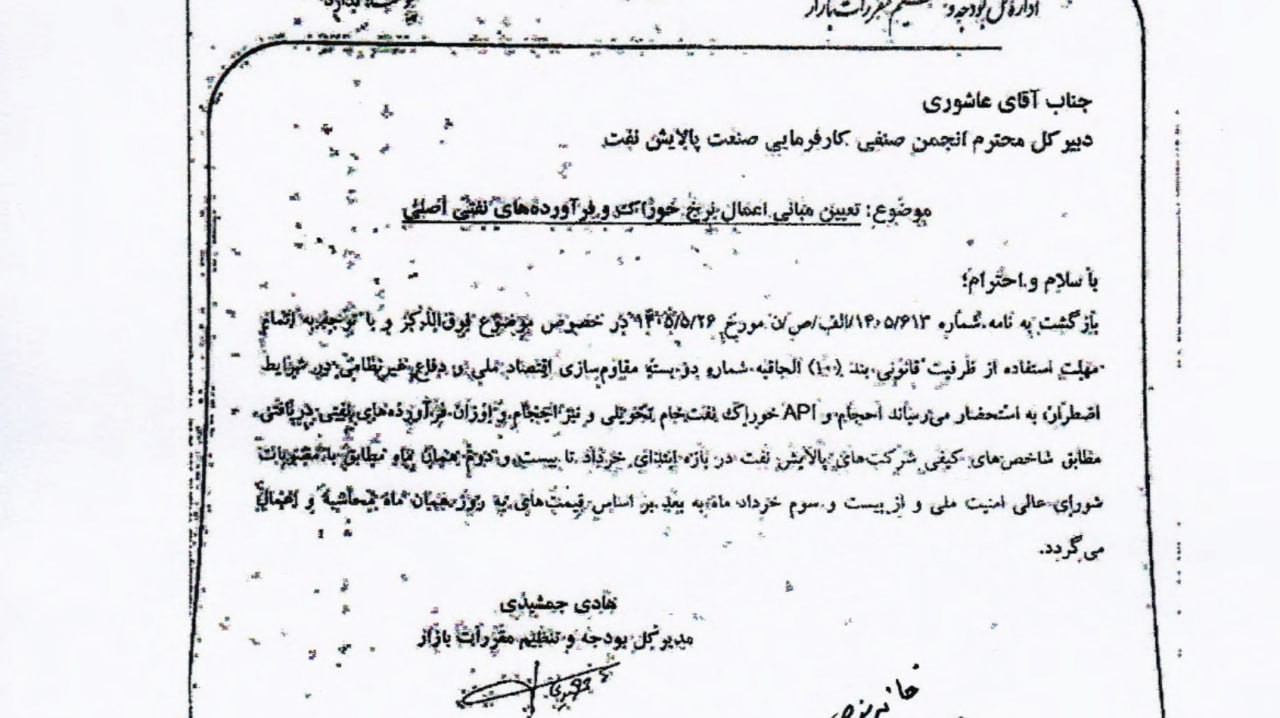 اداره کل بودجه و تنظیم مقررات بازار
ندارد
جناب آقای عاشوری
دبیر کل محترم انجمن صنفی کارفرمایی صنعت پالایش نفت
موضوع: تعیین مبانی اعمال نرخ خوراک و فرآورده‌های نفتی اصلی
با سلام و احترام؛
بازگشت به نامه شماره ۱۴۰۵/۶۱۳/الف/ص/ن مورخ ۱۴۰۵/۵/۲۶ در خصوص موضوع فوق‌الذکر و با توجه به اتمام
مهلت استفاده از ظرفیت قانونی بند (۱۰) الحاقیه شماره دو بسته مقاوم‌سازی اقتصاد ملی و دفاع غیرنظامی در شرایط
اضطرار، به استحضار می‌رساند احجام و API خوراک نفت‌خام تحویلی و نیز احجام و اوزان فرآورده‌های نفتی دریافتی
مطابق شاخص‌های کیفی شرکت‌های پالایش نفت در بازه ابتدای خرداد تا بیست و دوم همان ماه مطابق با مصوبات
شورای عالی امنیت ملی و از بیست و سوم خرداد ماه به بعد بر اساس قیمت‌های به روز همان ماه محاسبه و اعمال
می‌گردد.
هادی جمشیدی
مدیر کل بودجه و تنظیم مقررات بازار